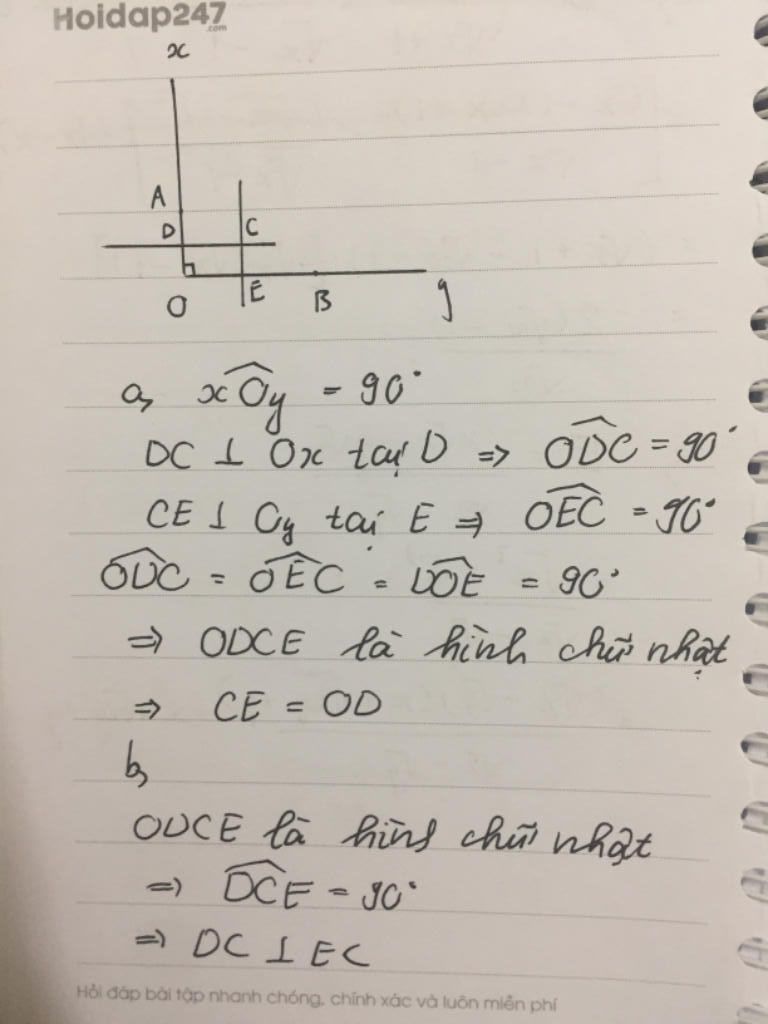 Hoidap247
.com
x
A
D
C
O
E
B
y
a, xÔy = 90°
DC ⊥ Ox tại D => ODC = 90°
CE ⊥ Oy tại E => OEC = 90°
ODC = OEC = DOE = 90°
=> ODCE là hình chữ nhật
=> CE = OD
b,
ODCE là hình chữ nhật
=> DCE = 90°
=> DC ⊥ EC
Hỏi đáp bài tập nhanh chóng, chính xác và luôn miễn phí